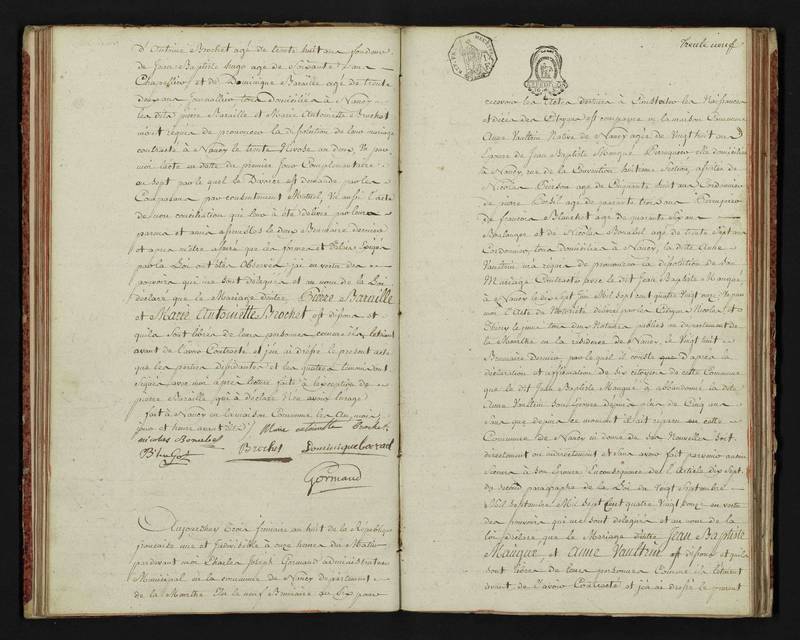 d'Antoine Brochet agé de trente huit ans fondeur,
de Jean Baptiste hugo age de Soixante
Chapellier, et de Dominique Baraille agé de trente
Journallier tous Domiciliés à Nancy
les dits pierre Baraille et Marie Antoinette Brochet
m'ont requis de prononcer la dissolution de leur mariage
contracté à Nancy le trente Nivose an deux, Vu par
moi l'acte en datte du premier Jour Complementaire
an sept par le quel le Divorce est demandé par les
Comparans par consentement Mutuel, Vu aussi l'acte
de non conciliation qui leur à été délivré par leurs
parens et amis assemblés le deux Brumaire dernier
et apres m'être assuré que les formes et Délais exigés
par la Loi ont étés Observés j'ai en vertu des
pouvoirs qui me sont delegués et au nom de la Loi
declaré que le Mariage d'entre Pierre Baraille
et Marie Antoinette Brochet est dissous et
quils sont libres de leurs personnes comme ils l'etoient
avant de l'avoir Contracté et j'en ai dressé le present acte
que les parties et les quatres temoins ont
signés avec moi apres lecture faite à l'exception de
pierre Baraille qui à déclaré n'en avoir l'usage
fait à Nancy en la maison Commune les an, mois,
jour et heure avant dits. Marie antoinette Brochet
nicolas
B hugo Brochet Dominique barail
Gormand
Aujourdhuy trois frimaire an huit de la Republique
francaise une et Indivisible à onze heures du Matin
pardevant moi Charles Joseph Gormand administrateur
Municipal de la commune de Nancy departement
de la Meurthe Elu le neuf Brumaire an Six pour
trente neuf
recevoir les Actes destinés à Constater les Naissances
et décès des Citoyens est comparu en la maison Commune
Anne Vaultrin Native de Nancy agée de Vingt huit ans
Epouse de Jean Baptiste Mangué, Perruquier elle domiciliée
à Nancy, rue de la Convention huitieme Section, assistée de
Nicolas Pierson agé de Cinquante huit ans Cordonnier
de pierre agé de quarante trois ans
de francois Blanchet agé de quarante Six ans
Boulanger et de Nicolas agé de trente Sept ans
Cordonnier, tous domiciliés à Nancy, la dite Anne
Vaultrin m'a requis de prononcer la dissolution de Son
Mariage Contracté avec le dit Jean Baptiste Mangué,
à Nancy le dix Sept Juin Mil Sept cent quatre Vingt onze, Vu par
moi l'Acte de Notorieté delivré par les Citoyens Nicolas et
le jeune tous deux Notaires publics au departement de
la Meurthe en la residence de Nancy, le Vingt huit
Brumaire Dernier, par le quel il conste que d'après la
déclaration et affirmation de Six citoyens de cette Commune
que le dit Jean Baptiste Mangué à abbandonné la dite
Anne Vaultrin Son Epouse depuis plus de Cinq ans
Sans que depuis ce moment il ait reparu en cette
Commune de Nancy ni donné de Ses Nouvelles Soit
directement ou indirectement et sans avoir fait parvenir aucun
Secours à son Epouse En consequence de l'Article dix Sept
du second paragraphe de la Loi du Vingt Septembre
Mil Sept Cent quatre Vingt Douze en vertu
des pouvoirs qui me sont delegués et au nom de la
loi je déclare que le Mariage d'entre Jean Baptiste
Mangué et Anne Vaultrin est dissous et qu'ils
sont libres de leurs personnes Comme ils l'étoient
avant de l'avoir Contracté et j'en ai dressé le present